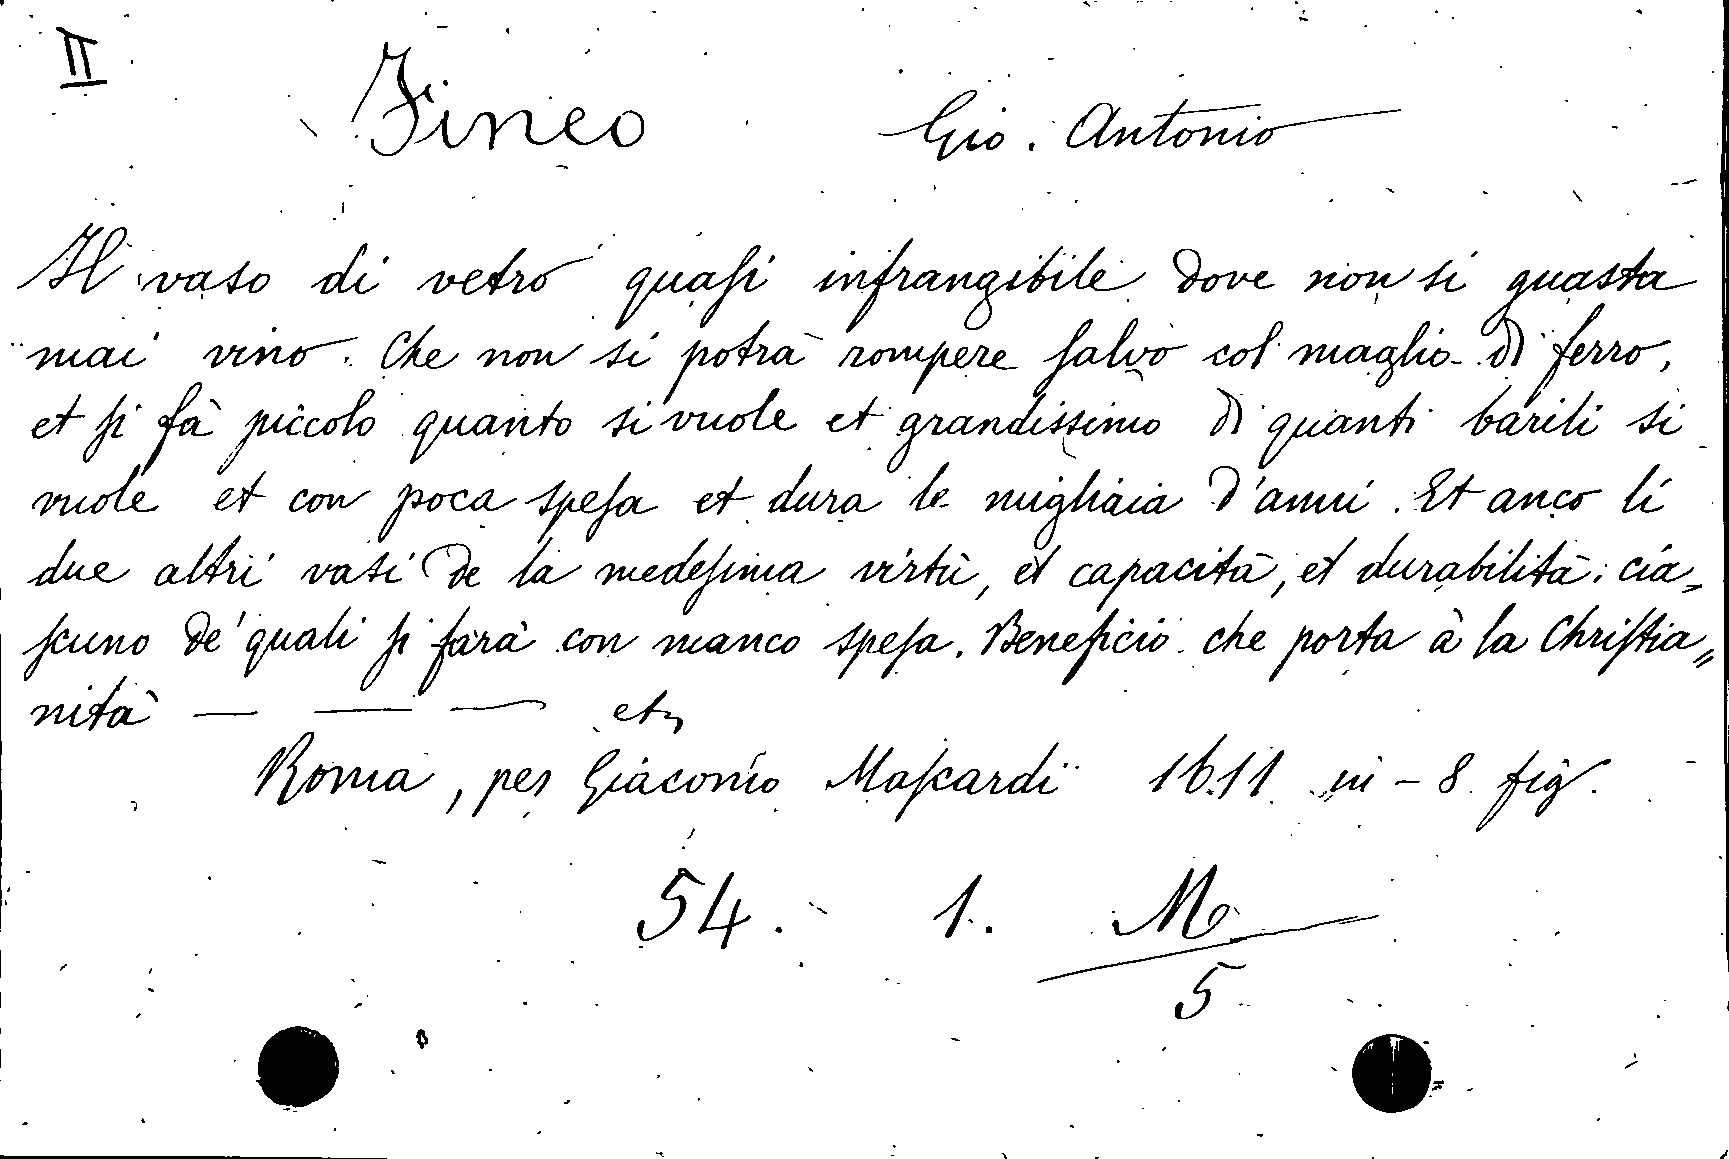 II
Fineo Gio. Antonio
Il vaso di vetro quaſi infrangibile dove non si guasta
mai vino. Che non si potrà rompere ſalvo col maglio di ferro,
et ſi fà piccolo quanto si vuole et grandissimo di quanti barili si
vuole et con poca speſa et dura le migliaia d'anni. Et anco li
due altri vasi de la medeſima virtù, et capacità, et durabilità: cia=
ſcuno de' quali ſi farà con manco speſa. Beneficio che porta à la Chriſtia=
nità — — — etc
Roma, per Giacomo Maſcardi 1611 in-8 fig.
54. 1. M
5